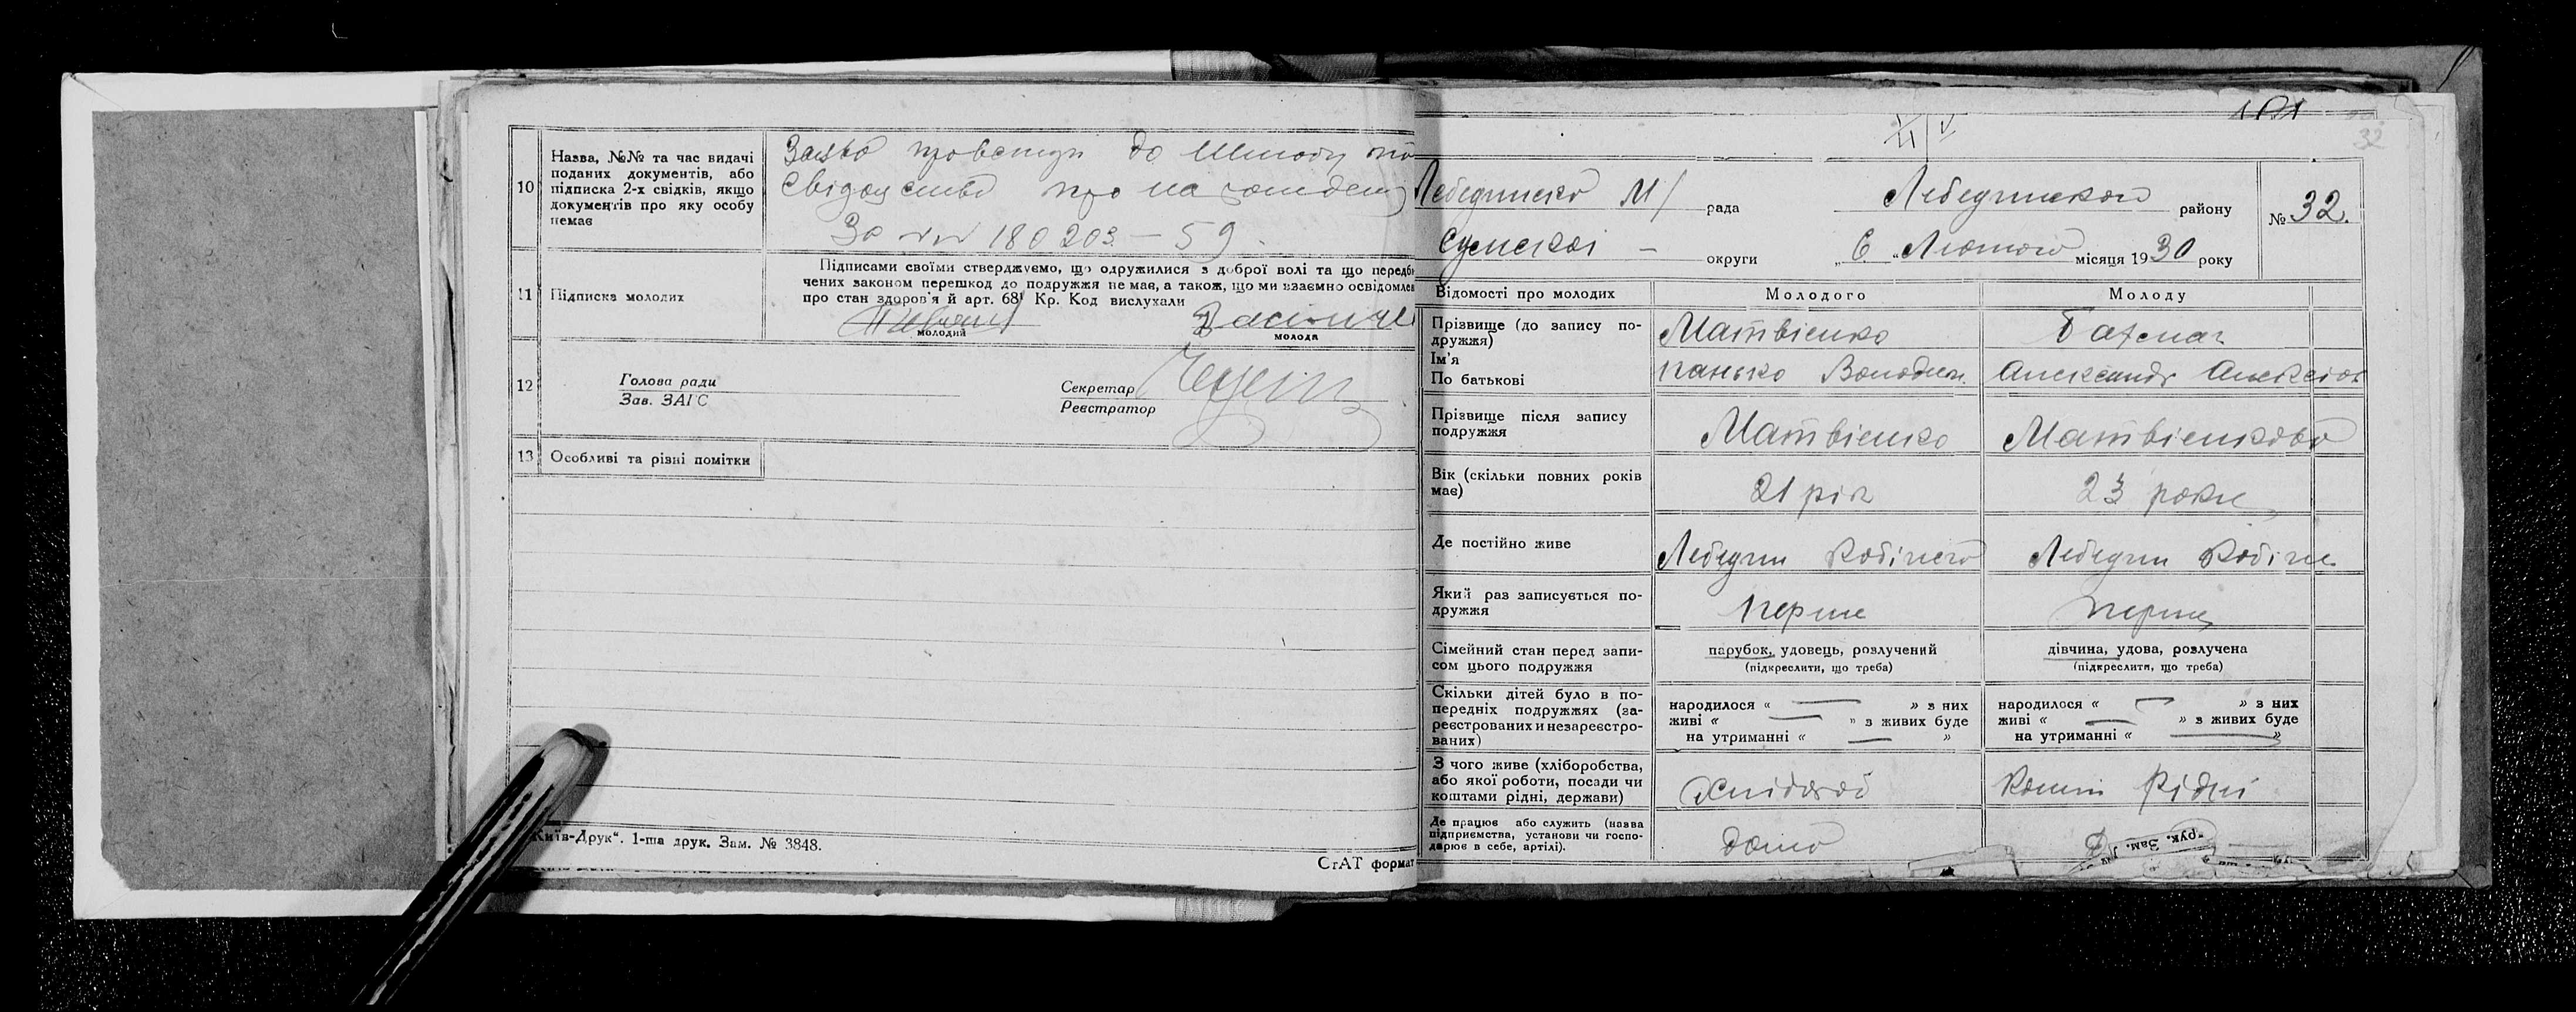 10
Назва, №№ та час видачі
поданих документів, або
підписка 2-х свідків, якщо
документів про яку особу
немає
до
про
180203 — 59
11
Підписка молодих
Підписами своїми стверджуємо, що одружилися з доброї волі та що передба
чених законом перешкод до подружжя немає, а також, що ми взаємно освідомлен
про стан здоров'я й арт. 68 Кр. Код вислухали
молодий
молода
12
Голова ради
Зав. ЗАГС
Секретар
Реєстратор
13
Особливі та різні помітки
Київ-Друк“. 1-ша друк. Зам. № 3848.
СтАТ формат
32
Лебединсько М/ рада Лебединського району
№ 32.
Сумської — округи „6 „Лютого місяця 1930 року
Відомості про молодих
Молодого
Молоду
Прізвище (до запису по-
дружжя)
Матвієнко
Ім'я
По батькові
Панько Володим.
Александр Алексіов
Прізвище після запису
подружжя
Матвієнко
Матвієнкова
Вік (скільки повних років
має)
21 рік
23 роки
Де постійно живе
Лебедин
Лебедин
Який раз записується по-
дружжя
Перше
перше
Сімейний стан перед запи-
сом цього подружжя
парубок, удовець, розлучений
(підкреслити, що треба)
дівчина, удова, розлучена
(підкреслити, що треба)
Скільки дітей було в по-
передніх подружжях (за-
реєстрованих и незареєстро-
ваних)
народилося « — » з них
живі « — » з живих буде
на утриманні « — »
народилося « — » з них
живі « — » з живих буде
на утриманні « — »
З чого живе (хліборобства,
або якої роботи, посади чи
коштами рідні, держави)
Хлібороб
Кошти Рідні
Де працює або служить (назва
підприємства, установи чи госпо-
дарює в себе, артілі).
дома
друк. Зам.